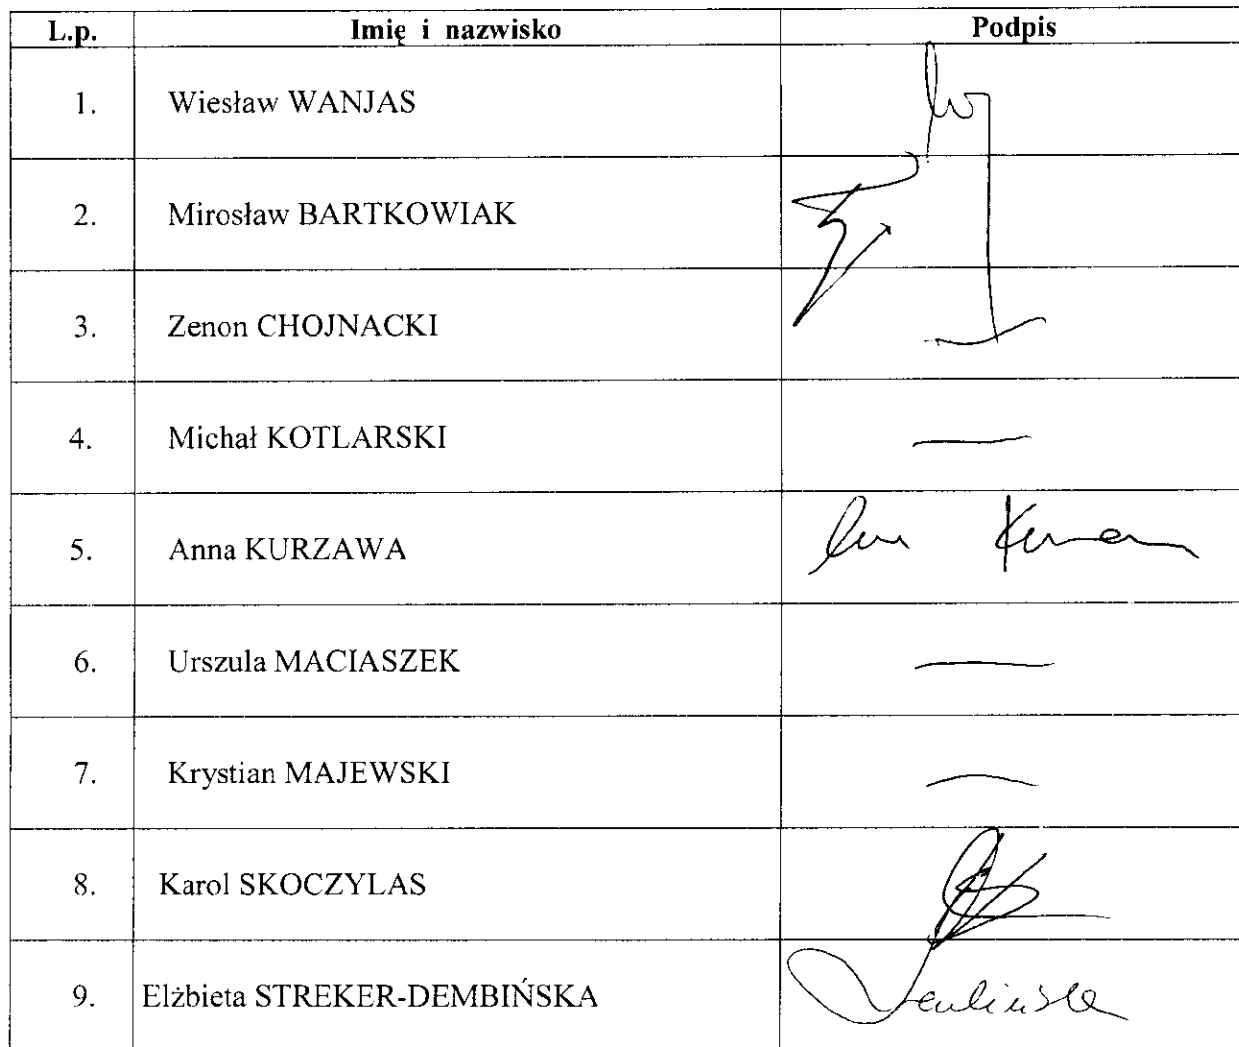 L.p. Imię i nazwisko Podpis
1. Wiesław WANJAS
2. Mirosław BARTKOWIAK
3. Zenon CHOJNACKI
4. Michał KOTLARSKI —
5. Anna KURZAWA
6. Urszula MACIASZEK —
7. Krystian MAJEWSKI —
8. Karol SKOCZYLAS
9. Elżbieta STREKER-DEMBIŃSKA